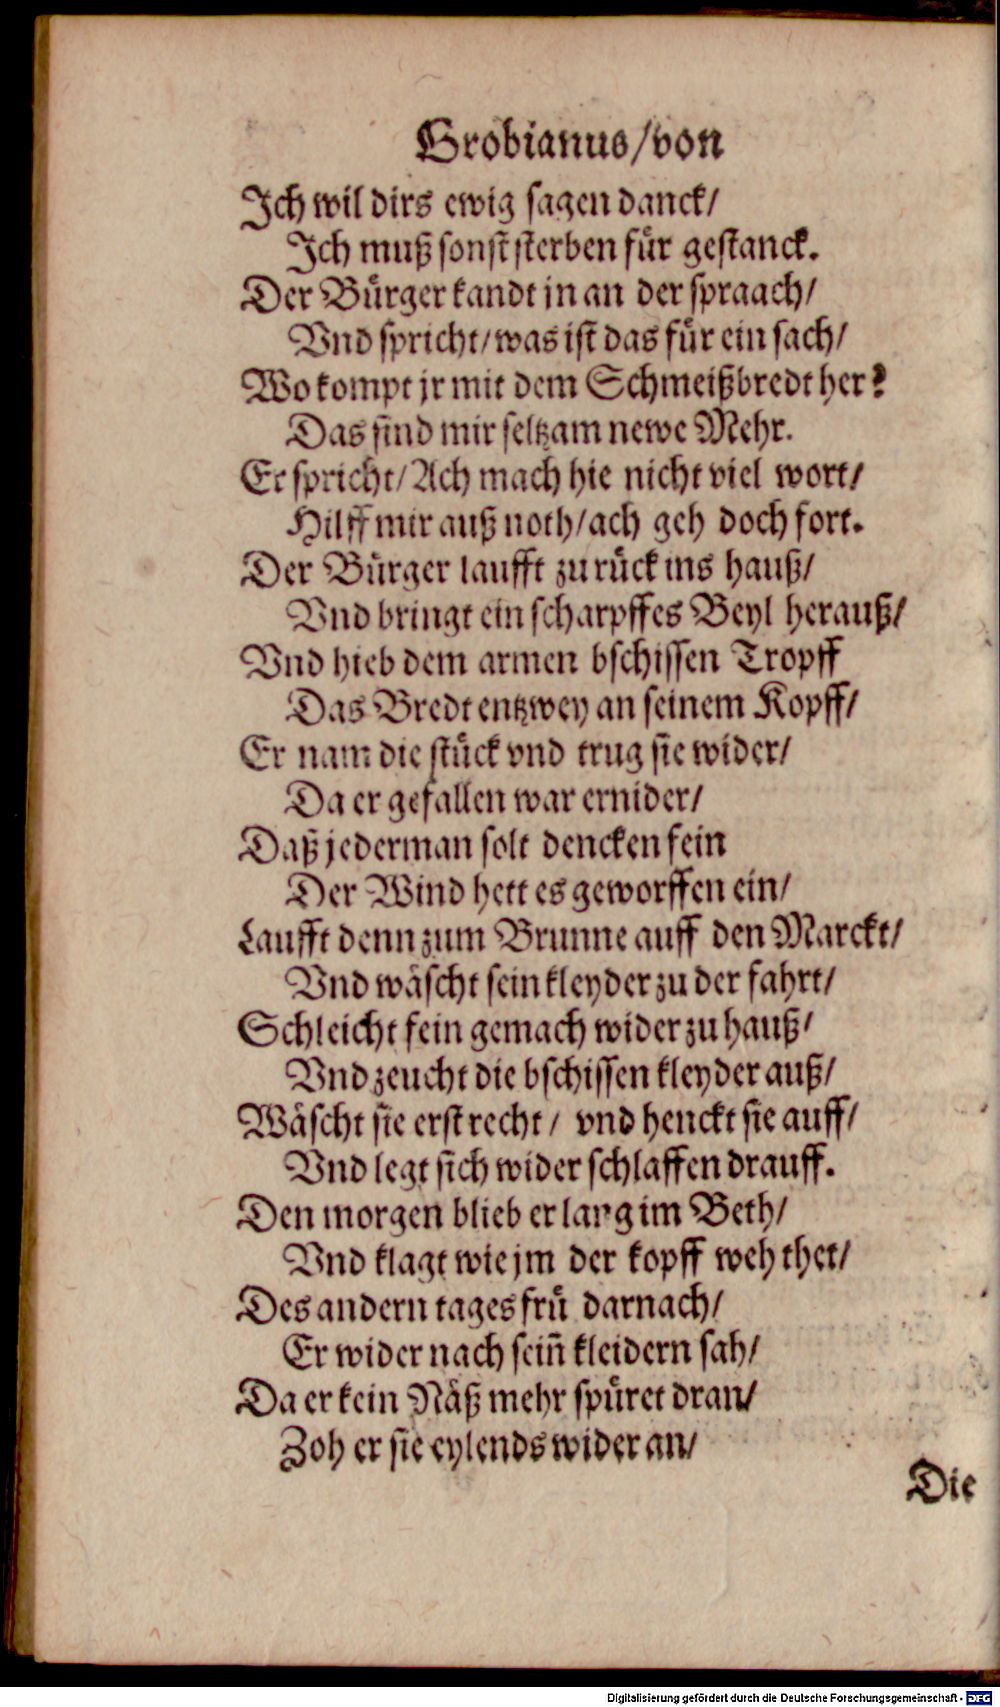 Grobianus/von
Ich wil dirs ewig sagen danck/
Ich muß sonst sterben fuͤr gestanck.
Der Buͤrger kandt jn an der spraach/
Vnd spricht/was ist das fuͤr ein sach/
Wo kompt jr mit dem Schmeißbredt her?
Das sind mir seltzam newe Mehr.
Er spricht/Ach mach hie nicht viel wort/
Hilff mir auß noth/ach geh doch fort.
Der Buͤrger laufft zu ruͤck ins hauß/
Vnd bringt ein scharpffes Beyl herauß/
Vnd hieb dem armen bschissen Tropff
Das Bredt entzwey an seinem Kopff/
Er nam die stuͤck vnd trug sie wider/
Da er gefallen war ernider/
Daß jederman solt dencken fein
Der Wind hett es geworffen ein/
Laufft denn zum Brunne auff den Marckt/
Vnd waͤscht sein kleyder zu der fahrt/
Schleicht fein gemach wider zu hauß/
Vnd zeucht die bschissen kleyder auß/
Waͤscht sie erst recht/ vnd henckt sie auff/
Vnd legt sich wider schlaffen drauff.
Den morgen blieb er lang im Beth/
Vnd klagt wie jm der kopff weh thet/
Des andern tages fruͤ darnach/
Er wider nach sein̄ kleidern sah/
Da er kein Naͤß mehr spuͤret dran/
Zoh er sie eylends wider an/
Die
Digitalisierung gefördert durch die Deutsche Forschungsgemeinschaft - DFG